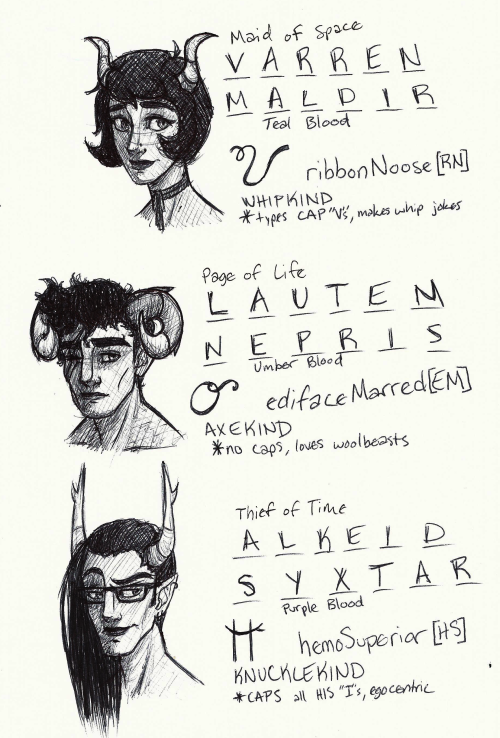 Maid of Space
VARREN
MALDIR
Teal Blood
ribbonNoose[RN]
WHIPKIND
*types CAP "V"s, makes whip jokes
Page of Life
LAUTEM
NEPRIS
Umber Blood
edifaceMarred[EM]
AXEKIND
*no caps, loves woolbeasts
Thief of Time
ALKEID
SYXTAR
Purple Blood
hemoSuperior[HS]
KNUCKLEKIND
*CAPS all HIS "I"s, egocentric